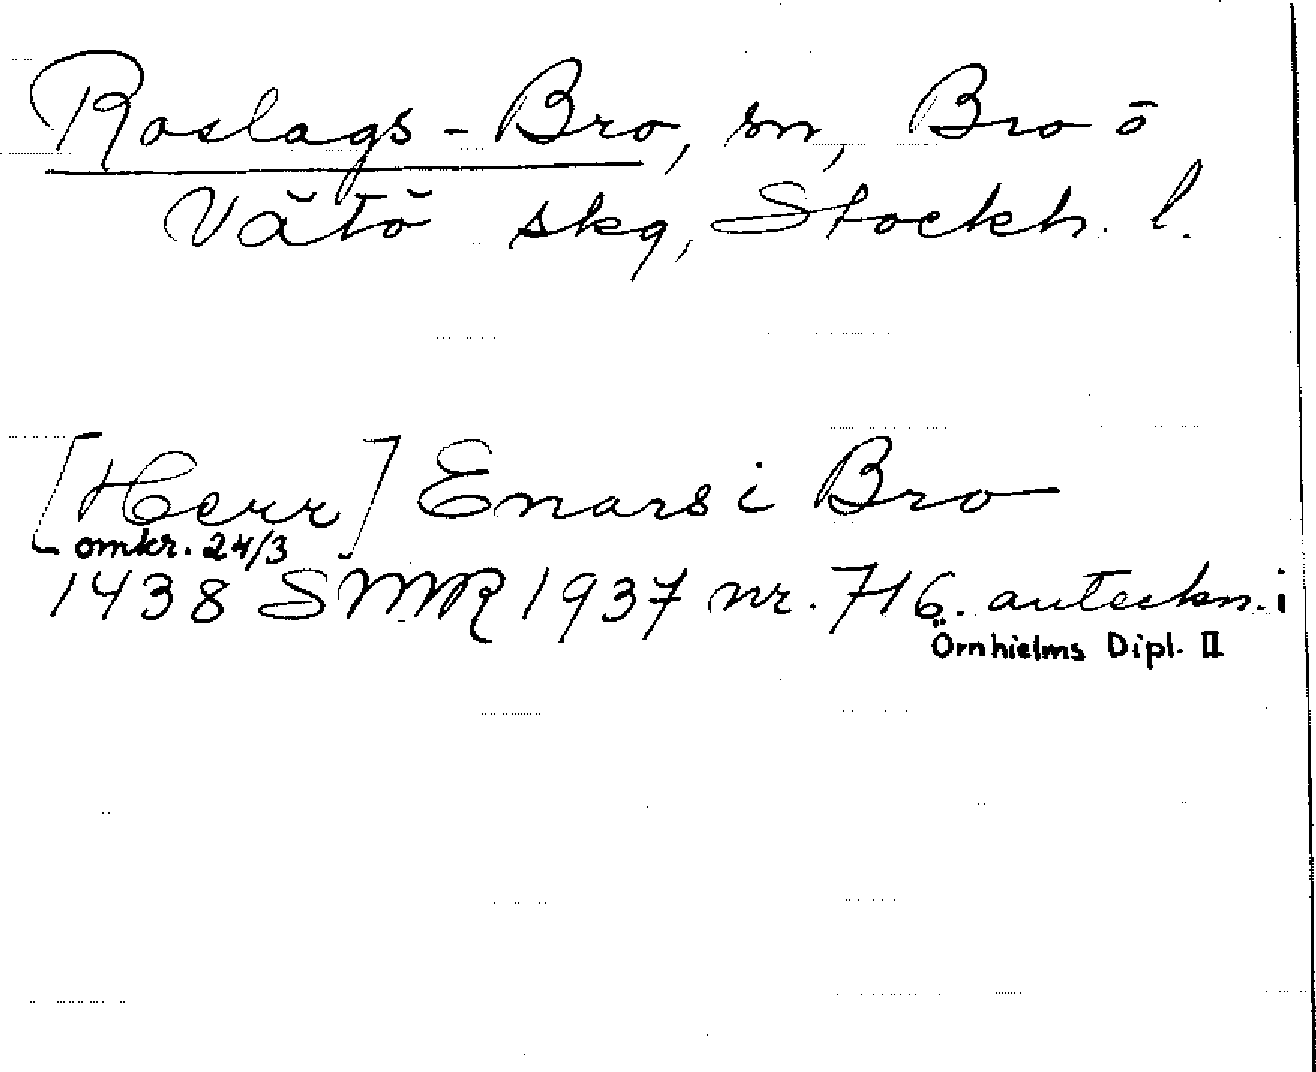 Roslags-Bro, sn, Bro ō
Vätö skg, Stockh. l.
[Herr] Enars i Bro
omkr. 24/3
1438 SMR 1937 nr. 716. anteckn. i
Örnhielms Dipl. II